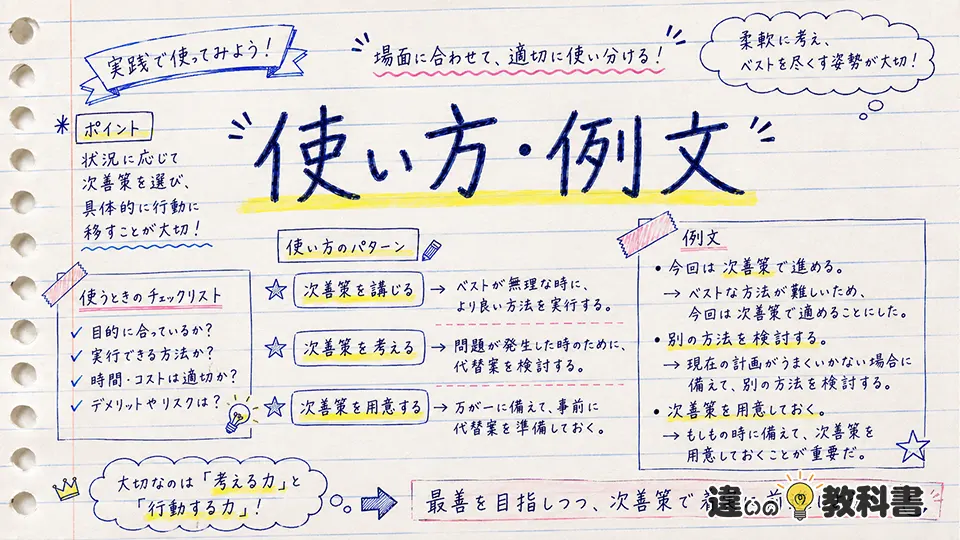 実践で使ってみよう！
場面に合わせて、適切に使い分ける！
柔軟に考え、
ベストを尽くす姿勢が大切！
使い方・例文
ポイント
状況に応じて
次善策を選び、
具体的に行動に
移すことが大切！
使うときのチェックリスト
目的に合っているか？
実行できる方法か？
時間・コストは適切か？
デメリットやリスクは？
使い方のパターン
次善策を講じる
→ ベストが無理な時に、
より良い方法を実行する。
次善策を考える
→ 問題が発生した時のために、
代替案を検討する。
次善策を用意する
→ 万が一に備えて、事前に
代替案を準備しておく。
例文
• 今回は 次善策で進める。
→ ベストな方法が難しいため、
今回は次善策で適めることにした。
• 別の方法を検討する。
→ 現在の計画がうまくいかない場合に
備えて、別の方法を検討する。
• 次善策を用意しておく。
→ もしもの時に備えて、次善策を
用意しておくことが重要だ。
大切なのは「考える力」と
「行動する力」！
最善を目指しつつ、次善策で
違いの教科書